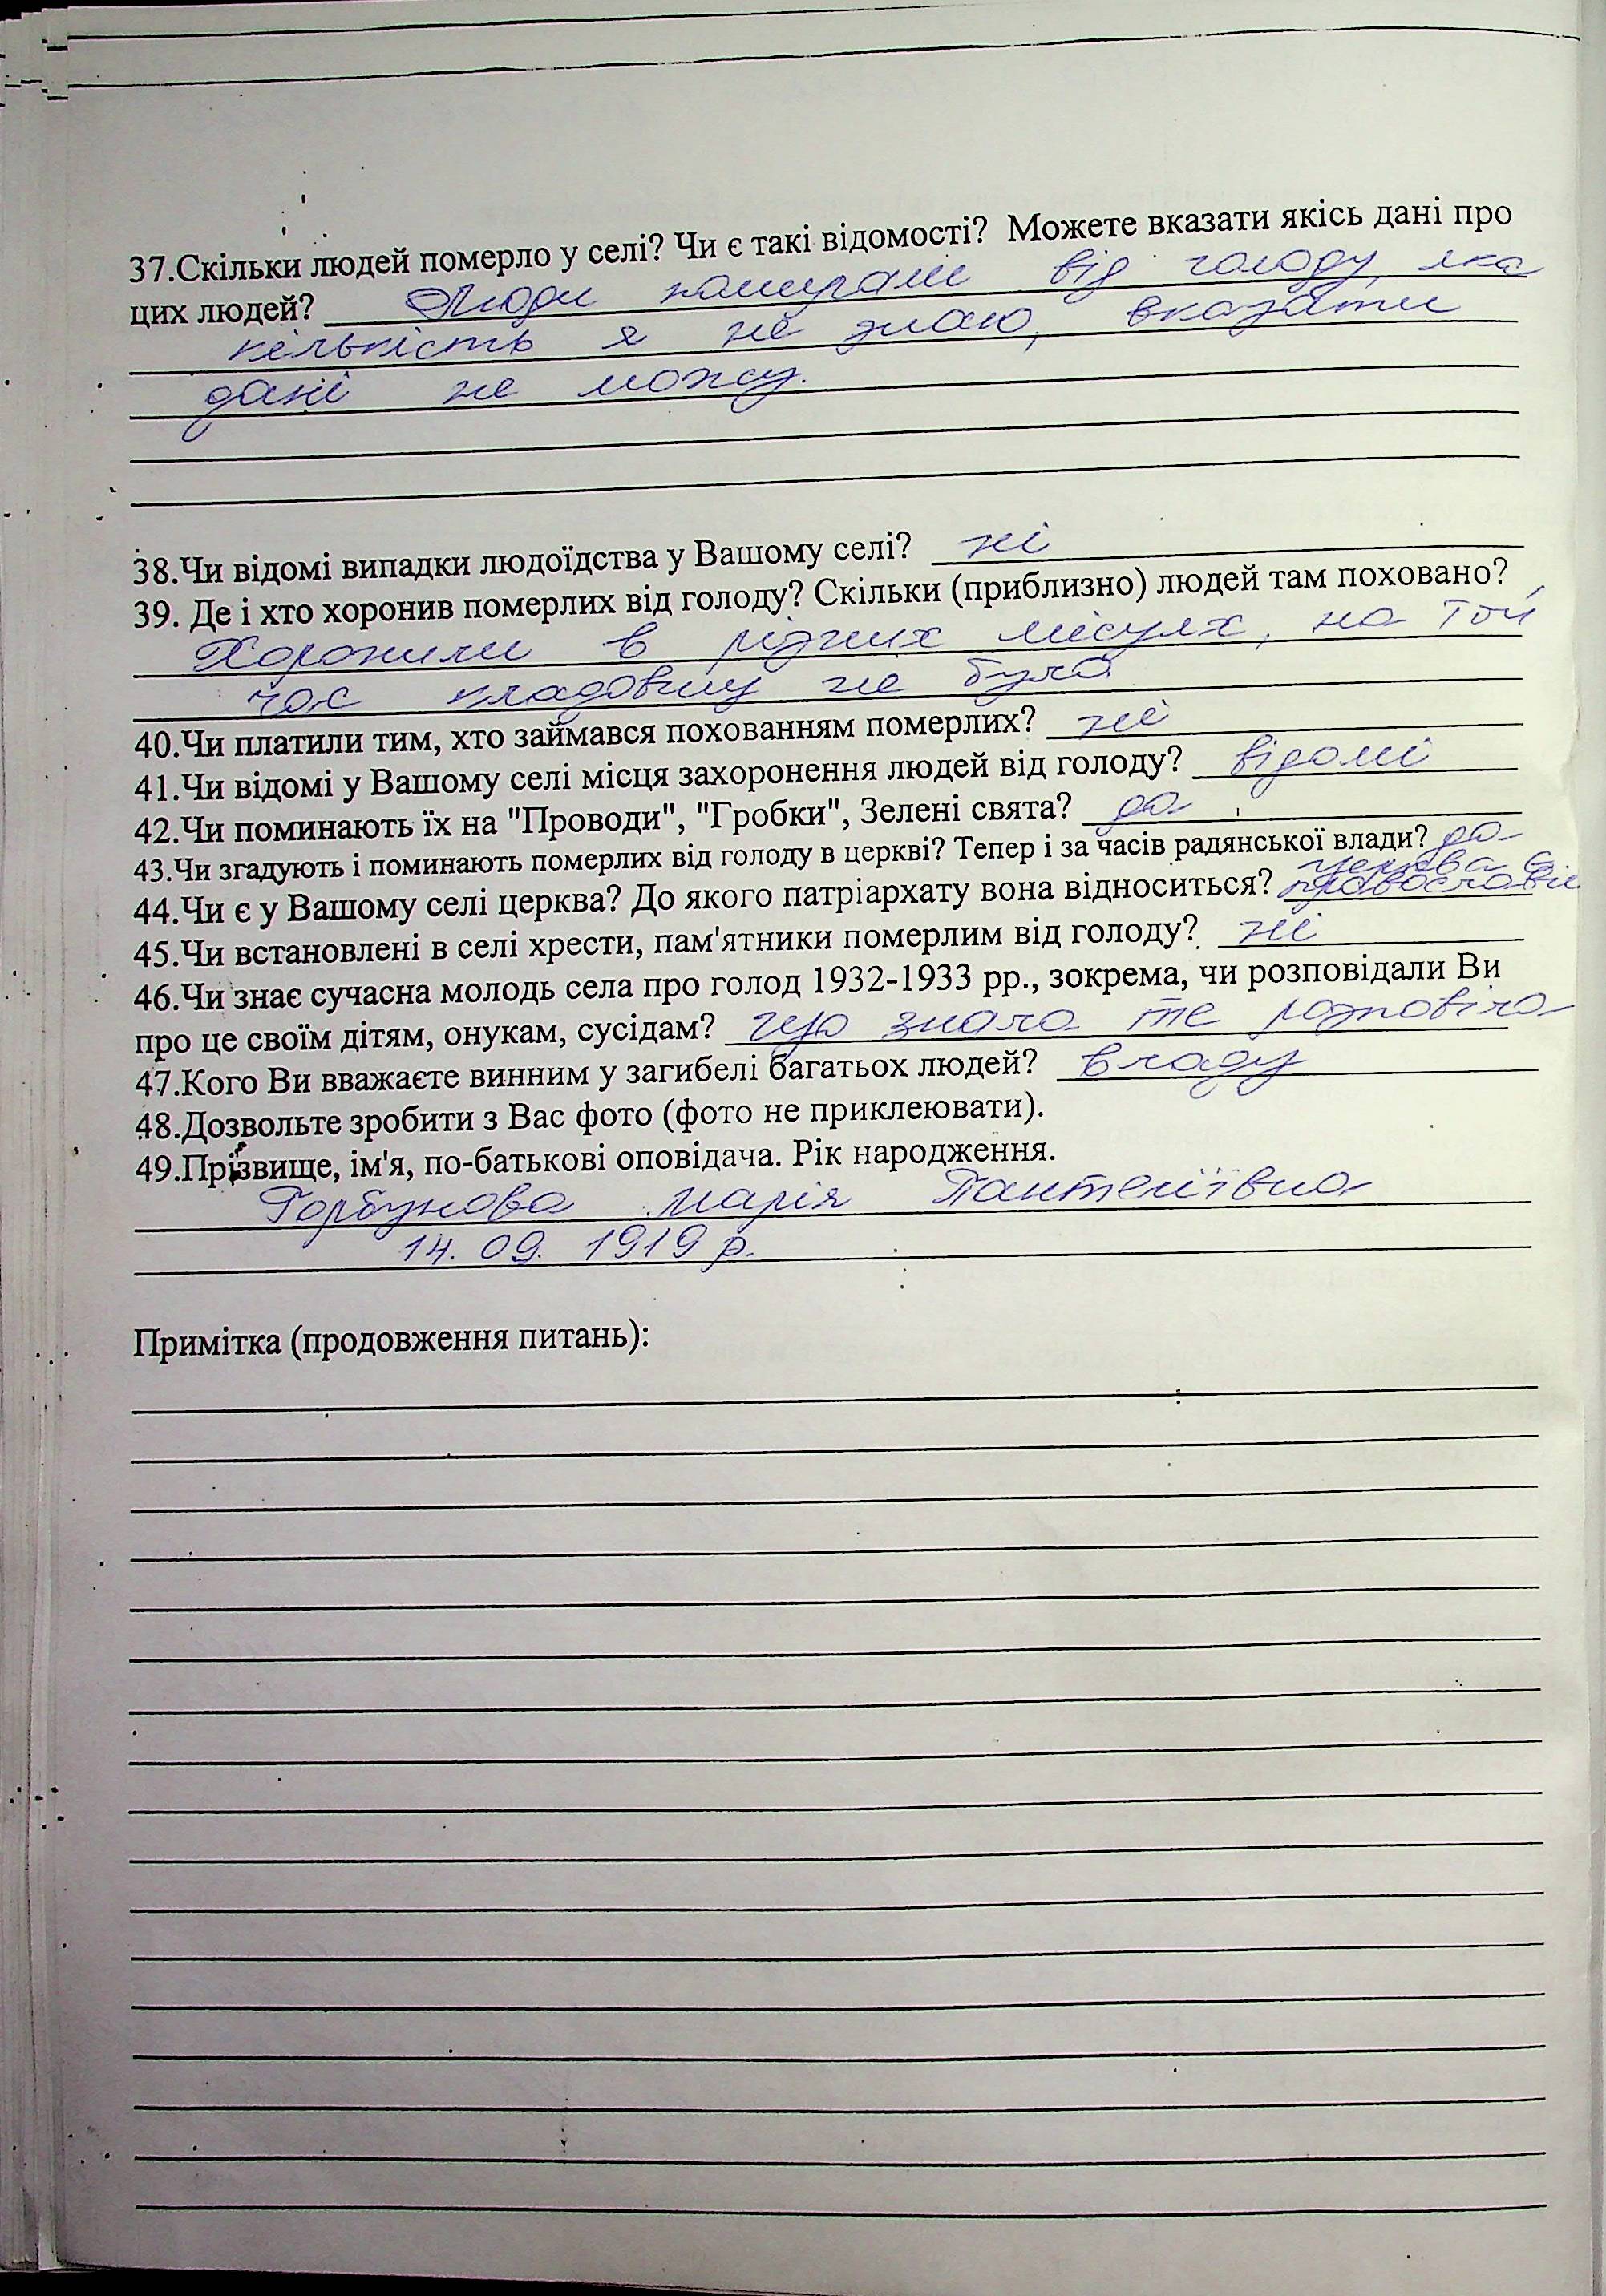 37.Скільки людей померло у селі? Чи є такі відомості? Можете вказати якісь дані про
цих людей? Люди помирали від голоду, яка
кількість я не знаю, вказати
дані не можу.
38.Чи відомі випадки людоїдства у Вашому селі? ні
39. Де і хто хоронив померлих від голоду? Скільки (приблизно) людей там поховано?
Хоронили в різних місцях, на той
час кладовищ не було
40.Чи платили тим, хто займався похованням померлих? ні
41.Чи відомі у Вашому селі місця захоронення людей від голоду? відомі
42.Чи поминають їх на "Проводи", "Гробки", Зелені свята? да
43.Чи згадують і поминають померлих від голоду в церкві? Тепер і за часів радянської влади? да
44.Чи є у Вашому селі церква? До якого патріархату вона відноситься? церква є
45.Чи встановлені в селі хрести, пам'ятники померлим від голоду? ні
46.Чи знає сучасна молодь села про голод 1932-1933 рр., зокрема, чи розповідали Ви
про це своїм дітям, онукам, сусідам? що знала те розповіла
47.Кого Ви вважаєте винним у загибелі багатьох людей? владу
48.Дозвольте зробити з Вас фото (фото не приклеювати).
49.Прізвище, ім'я, по-батькові оповідача. Рік народження.
Горбунова Марія Пантеліївна
14.09.1919 р.
Примітка (продовження питань):